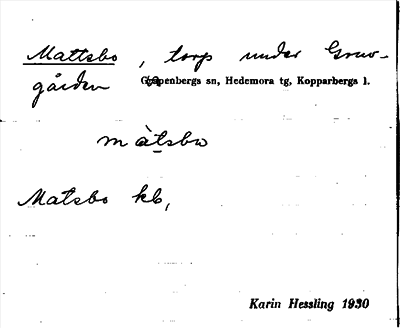 Mattsbo, torp under Gruv-
gården Garpenbergs sn, Hedemora tg, Kopparbergs l.
màtsbω
Matsbo kb,
Karin Hessling 1930